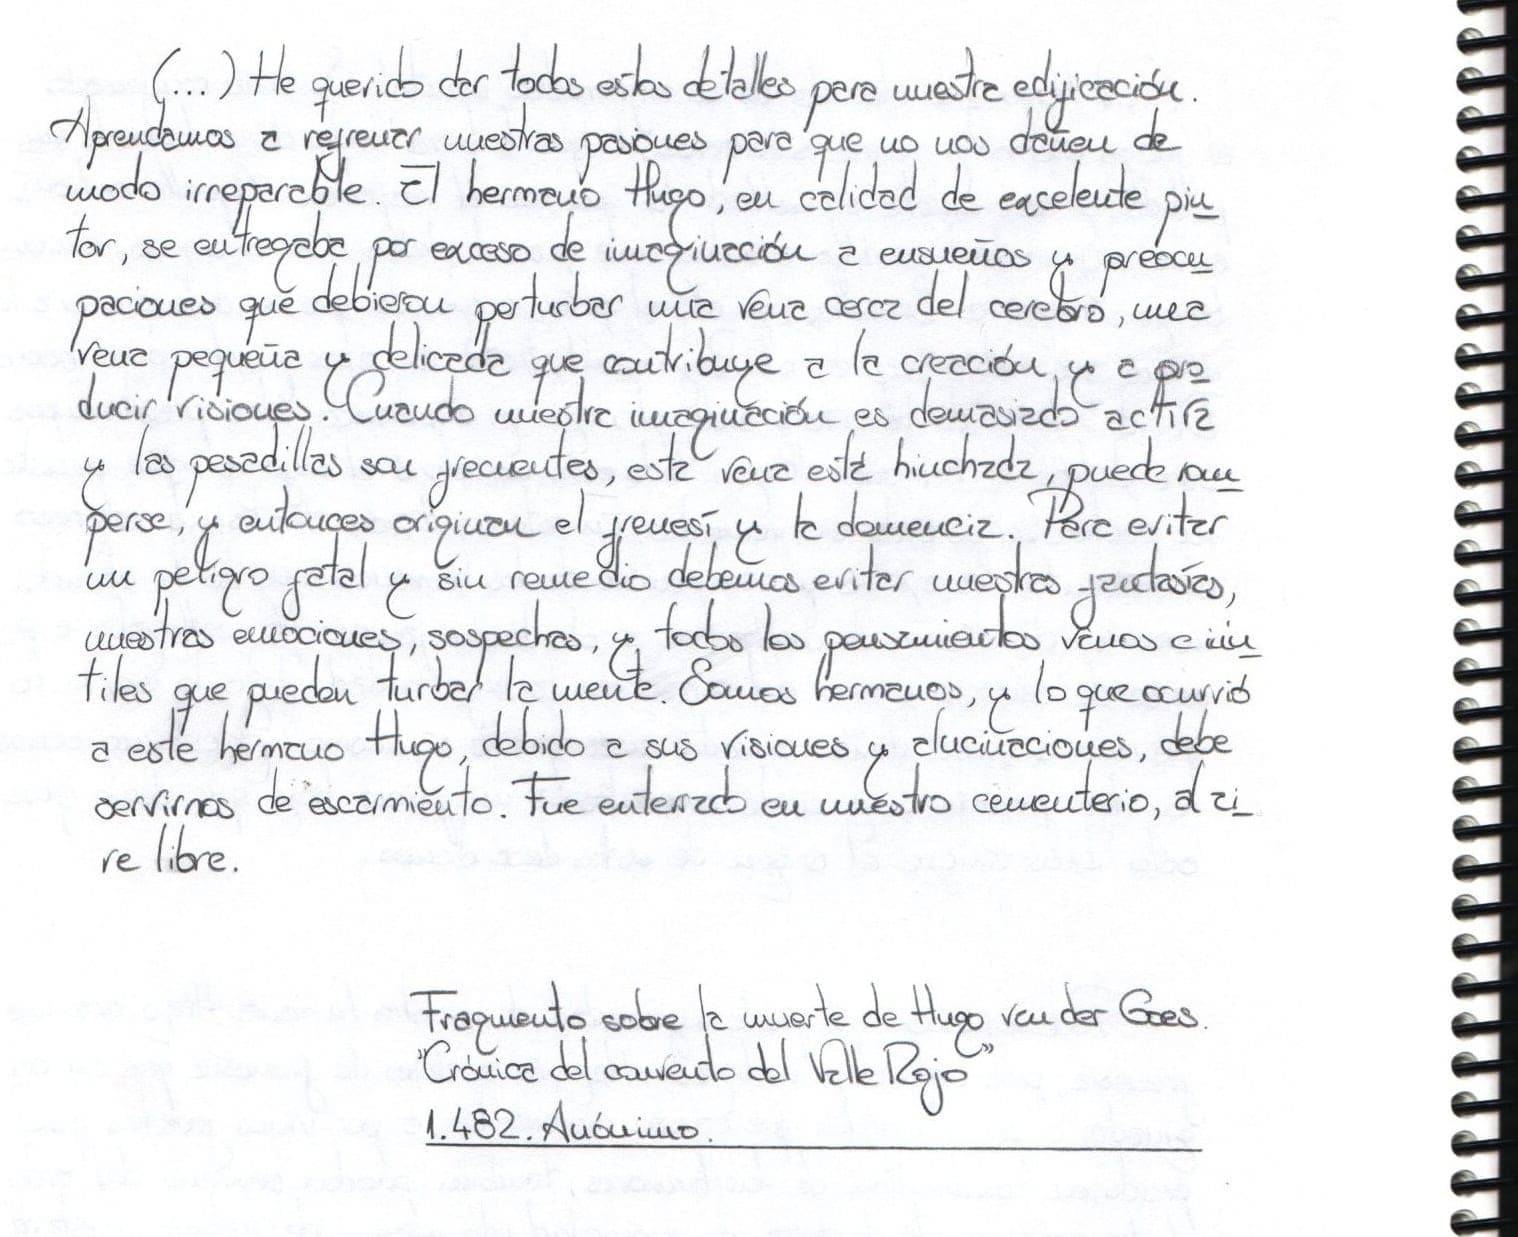 (...) He querido dar todos estos detalles para nuestra edificación.
Aprendamos a refrenar nuestras pasiones para que no nos dañen de
modo irreparable. El hermano Hugo, en calidad de excelente pin
tor, se entregaba por exceso de imaginación a ensueños y preocu
paciones que debieron perturbar una vena cerca del cerebro, una
vena pequeña y delicada que contribuye a la creación y a pro
ducir visiones. Cuando nuestra imaginación es demasiado activa
y las pesadillas son frecuentes, esta vena está hinchada, puede rom
perse, y entonces originan el frenesí y la demencia. Para evitar
un peligro fatal y sin remedio debemos evitar nuestras fantasías,
nuestras emociones, sospechas, y todos los pensamientos vanos e inú
tiles que pueden turbar la mente. Somos hermanos, y lo que ocurrió
a este hermano Hugo, debido a sus visiones y alucinaciones, debe
servirnos de escarmiento. Fue enterrado en nuestro cementerio, al ai
re libre.
Fragmento sobre la muerte de Hugo van der Goes.
"Crónica del convento del Valle Rojo"
1.482. Anónimo.